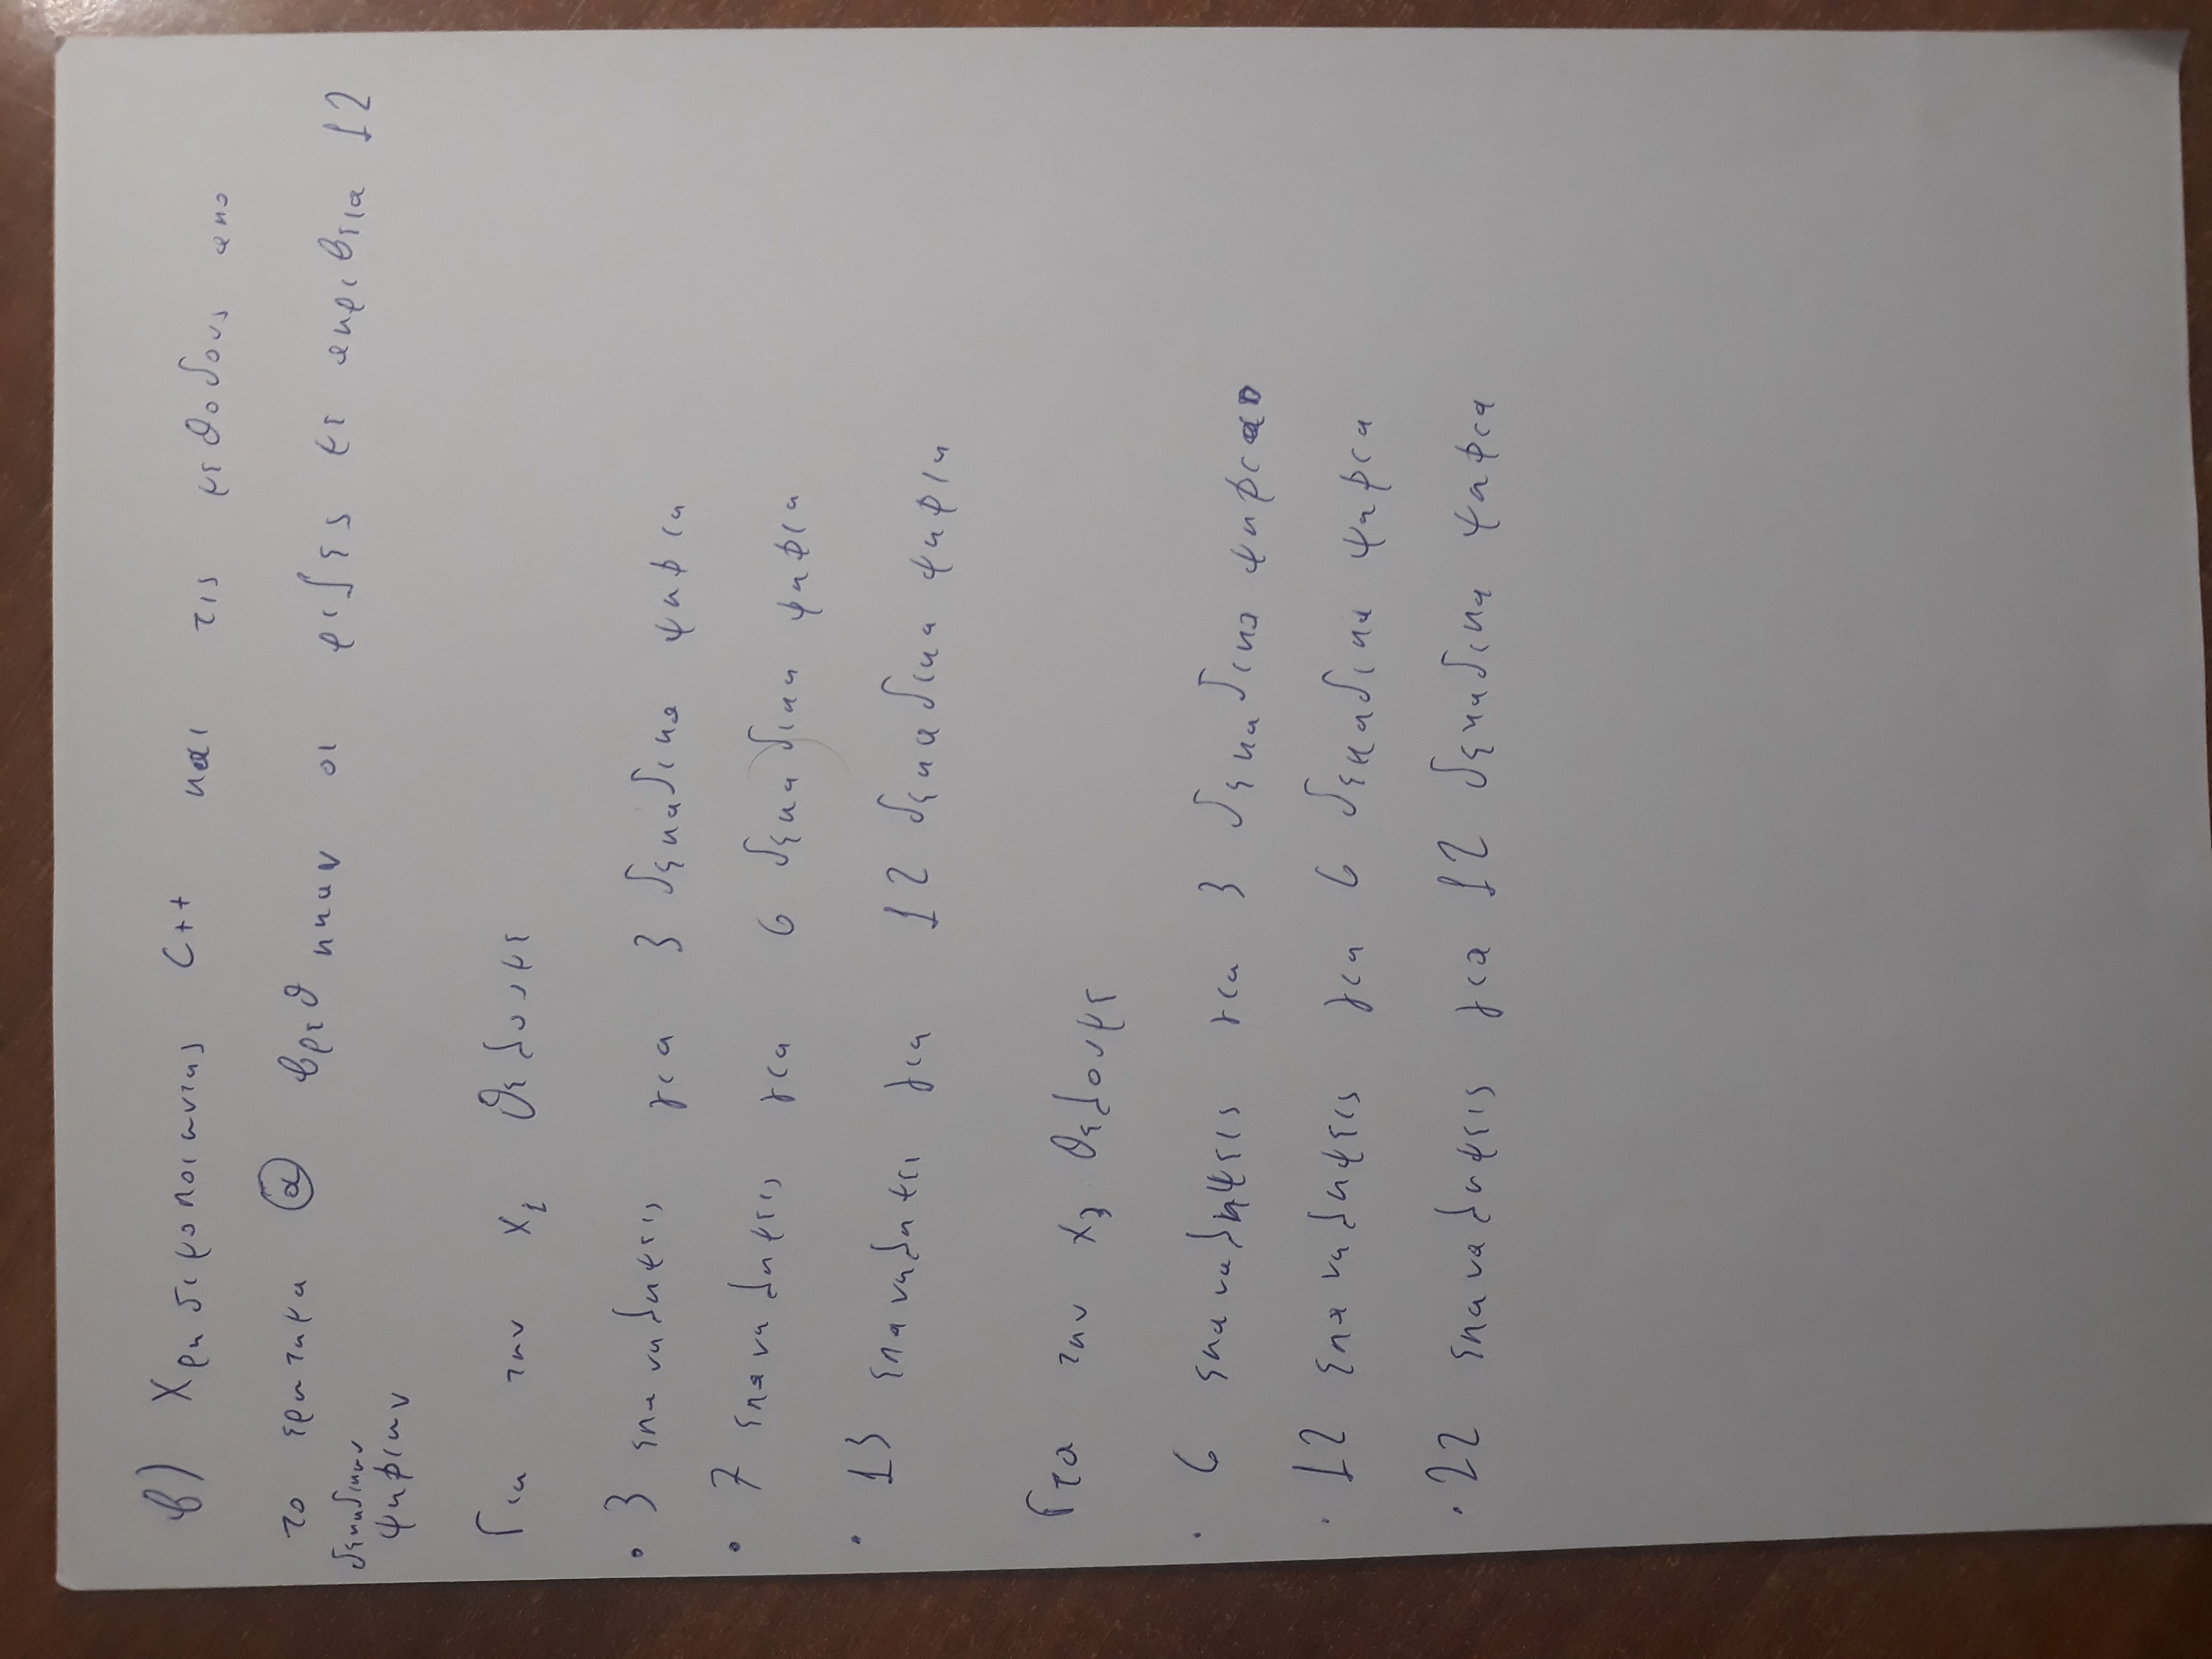 β) Χρησιμοποιωντας C++ και τις μεθοδους απο
το ερωτημα α βρεθηκαν οι ριζες με ακριβεια 12
δεκαδικων
ψηφιων
Για την x₁ θελουμε
• 3 επαναληψεις για 3 δεκαδικα ψηφια
• 7 επαναληψεις για 6 δεκαδικα ψηφια
• 13 επαναληψει για 12 δεκαδικα ψηφια
Για την x₃ θελουμε
• 6 επαναληψεις για 3 δεκαδικα ψηφια
• 12 επαναληψεις για 6 δεκαδικα ψηφια
• 22 επαναληψεις για 12 δεκαδικα ψηφια